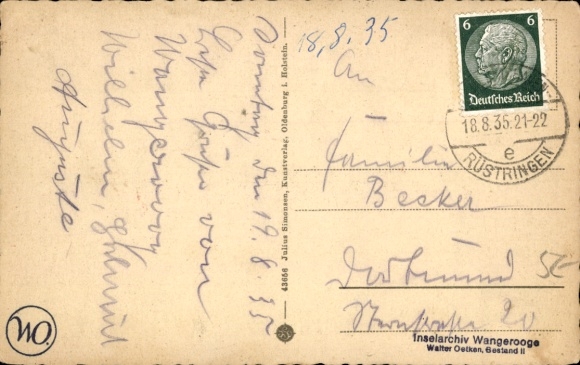 18.8.35
Sonntag den 19.8.35
Liebe Grüße von
Wangerooge
Wilhelm, Helmut
Auguste
43656 Julius Simonsen, Kunstverlag, Oldenburg i. Holstein.
6 6
Deutsches Reich
18.8.35.21-22
e
RÜSTRINGEN
An
Familie
Becker
Dortmund
20
Inselarchiv Wangerooge
Walter Oetken, Bestand II